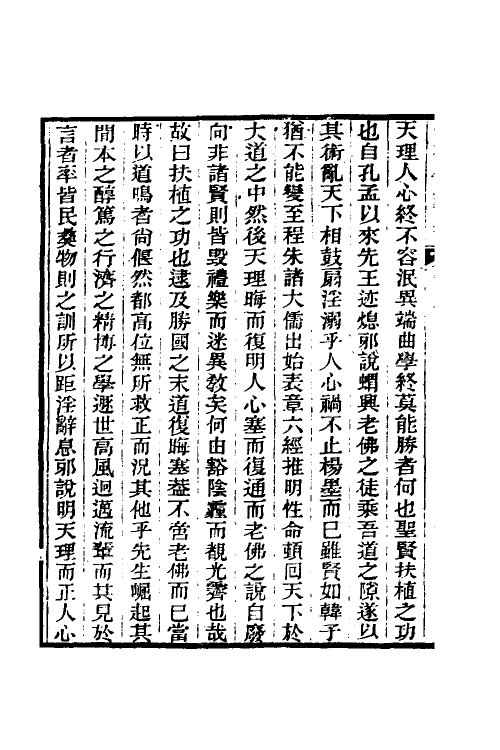 天理人心終不容泯異端曲學終莫能勝者何也聖賢扶植之功
也自孔孟以來先王迹熄邪說蝟興老佛之徒乘吾道之隙遂以
其術亂天下相鼓扇淫溺乎人心禍不止楊墨而已雖賢如韓子
猶不能變至程朱諸大儒出始表章六經推明性命頓回天下於
大道之中然後天理晦而復明人心塞而復通而老佛之說自廢
向非諸賢則皆毀禮樂而迷異教矣何由豁陰霾而覩光霽也哉
故曰扶植之功也逮及勝國之末道復晦塞葢不啻老佛而已當
時以道鳴者尙偃然都高位無所救正而況其他乎先生崛起其
間本之醇篤之行濟之精博之學遯世高風迥邁流輩而其見於
言者率皆民彝物則之訓所以距淫辭息邪說明天理而正人心